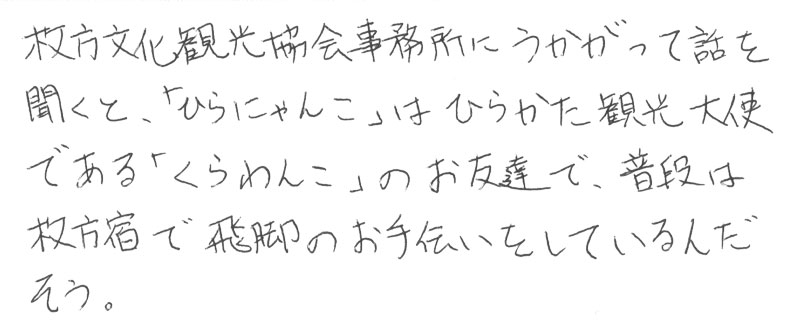 枚方文化観光協会事務所にうかがって話を
聞くと、「ひらにゃんこ」はひらかた観光大使
である「くらわんこ」のお友達で、普段は
枚方宿で飛脚のお手伝いをしているんだ
そう。